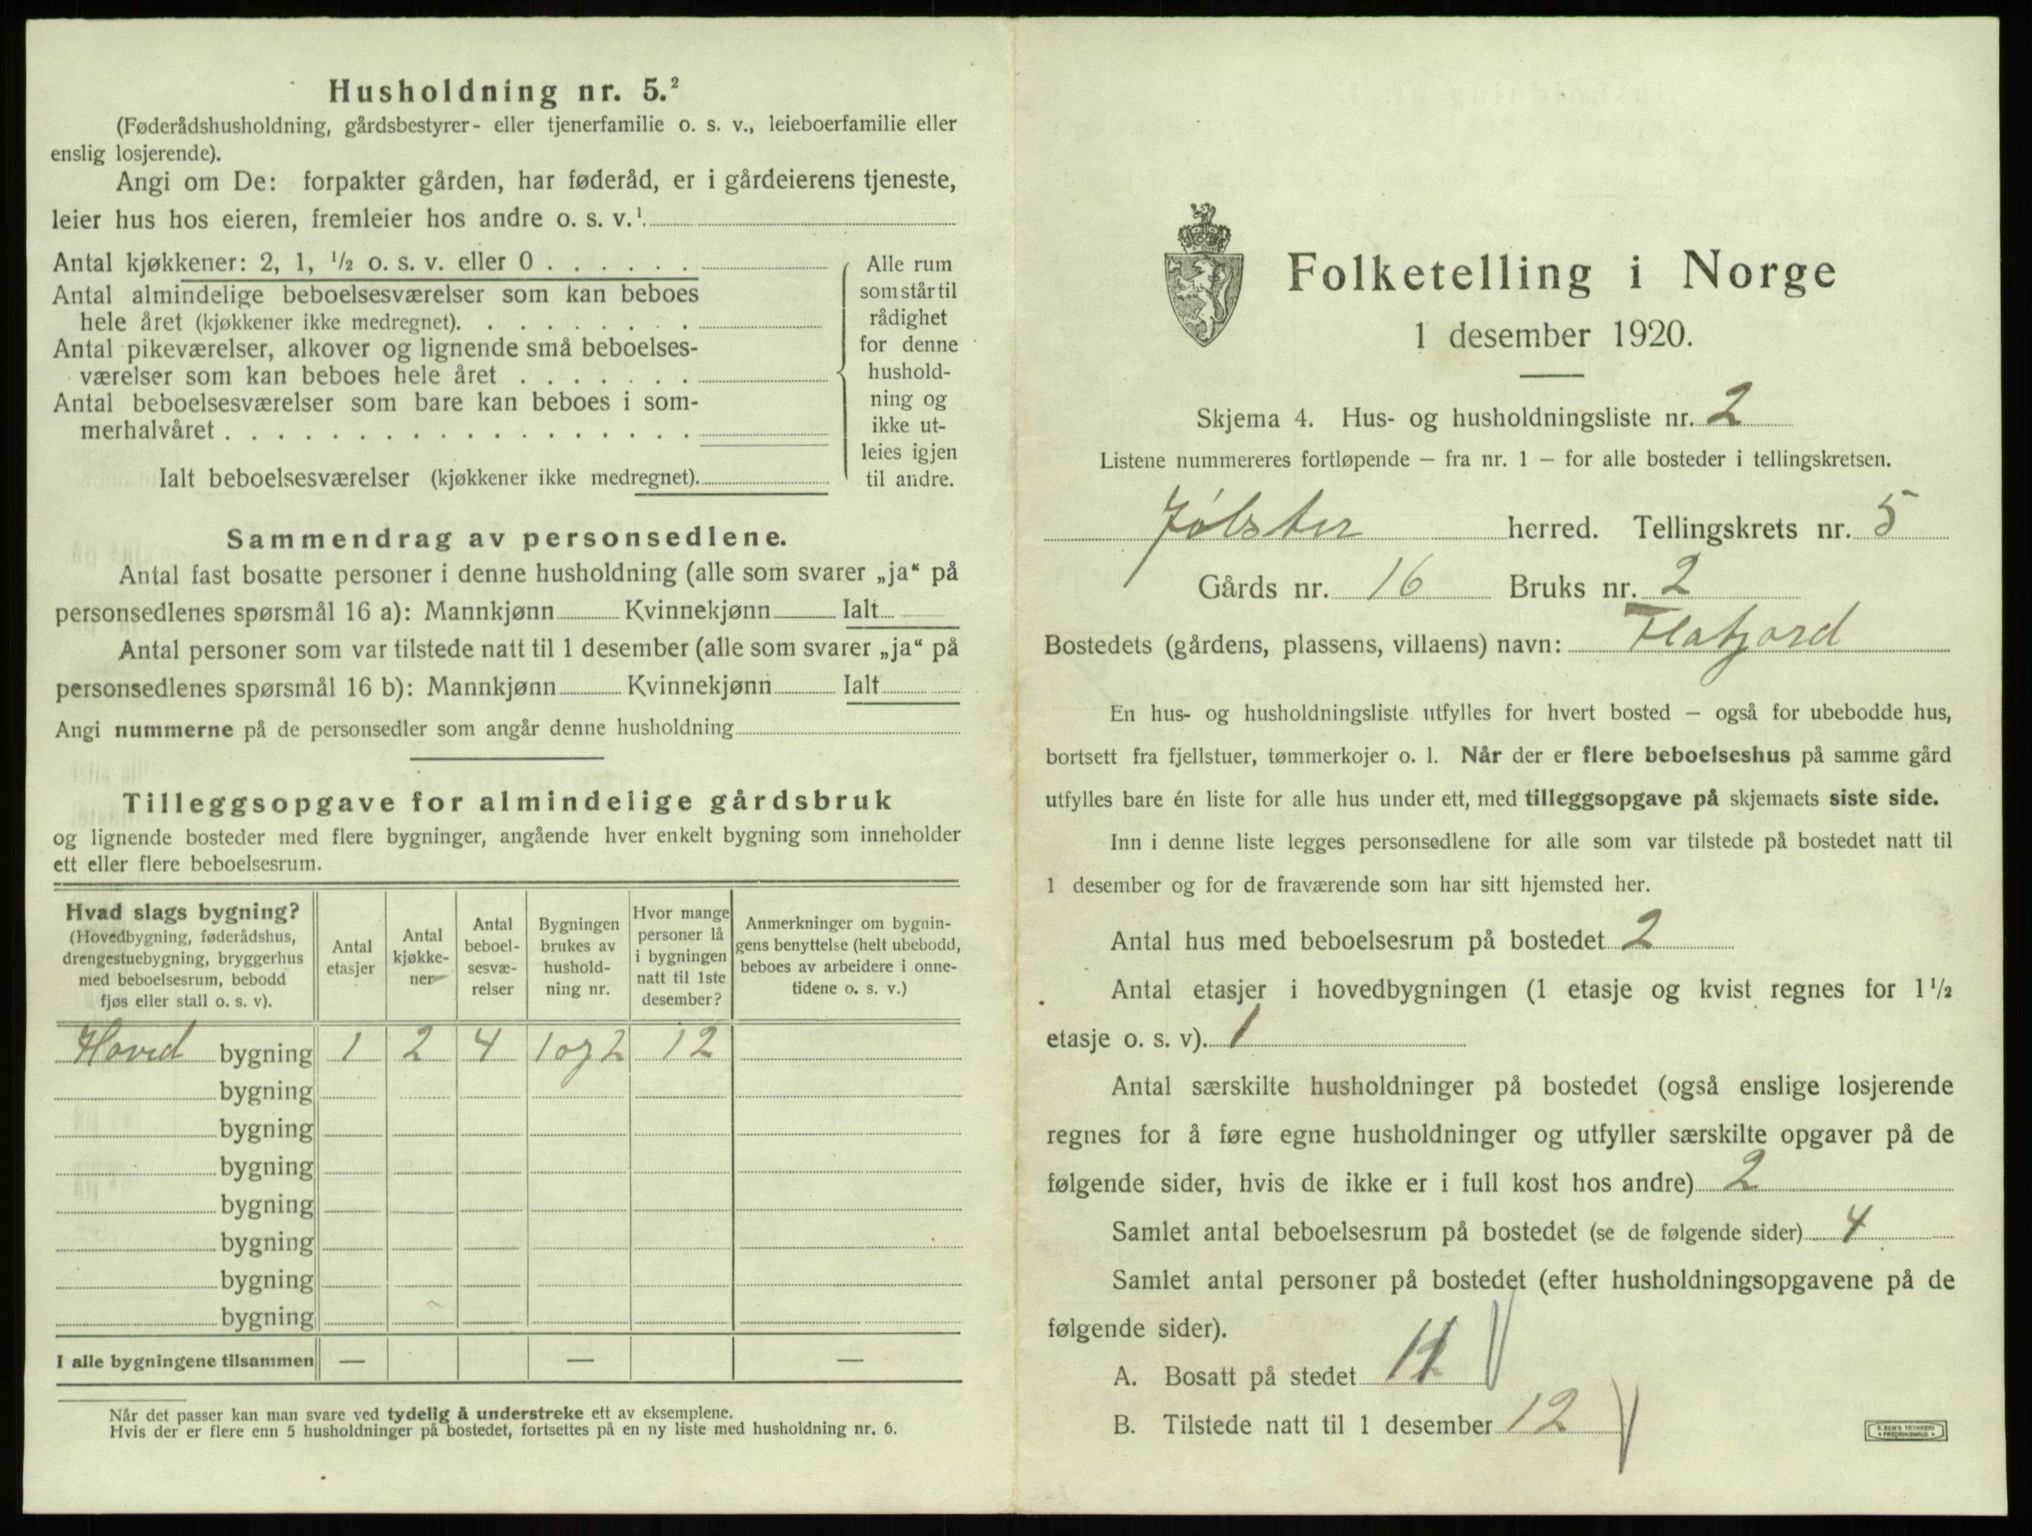 Husholdning nr. 5.²
(Føderådshusholdning, gårdsbestyrer- eller tjenerfamilie o. s. v., leieboerfamilie eller
enslig losjerende).
Angi om De: forpakter gården, har føderåd, er i gårdeierens tjeneste,
leier hus hos eieren, fremleier hos andre o. s. v.¹
Antal kjøkkener: 2, 1, ½ o. s. v. eller 0 . . . . . .
Antal almindelige beboelsesværelser som kan beboes
hele året (kjøkkener ikke medregnet). . . . . . . . .
Antal pikeværelser, alkover og lignende små beboelses-
værelser som kan beboes hele året . . . . . . .
Antal beboelsesværelser som bare kan beboes i som-
merhalvåret . . . . . . . . . . . . . . . . . .
Ialt beboelsesværelser (kjøkkener ikke medregnet).
Alle rum
som står til
rådighet
for denne
hushold-
ning og
ikke ut-
leies igjen
til andre.
Sammendrag av personsedlene.
Antal fast bosatte personer i denne husholdning (alle som svarer „ja“ på
personsedlenes spørsmål 16 a): Mannkjønn Kvinnekjønn Ialt
Antal personer som var tilstede natt til 1 desember (alle som svarer „ja“ på
personsedlenes spørsmål 16 b): Mannkjønn Kvinnekjønn Ialt
Angi nummerne på de personsedler som angår denne husholdning
Tilleggsopgave for almindelige gårdsbruk
og lignende bosteder med flere bygninger, angående hver enkelt bygning som inneholder
ett eller flere beboelsesrum.
Hvad slags bygning?
(Hovedbygning, føderådshus,
drengestuebygning, bryggerhus
med beboelsesrum, bebodd
fjøs eller stall o. s. v).
Antal
etasjer
Antal
kjøkke-
ner
Antal
beboel-
sesvæ-
relser
Bygningen
brukes av
hushold-
ning nr.
Hvor mange
personer lå
i bygningen
natt til 1ste
desember?
Anmerkninger om bygnin-
gens benyttelse (helt ubebodd,
beboes av arbeidere i onne-
tidene o. s. v.)
Hoved bygning 1 2 4 1 og 2 12
bygning
bygning
bygning
bygning
bygning
bygning
bygning
I alle bygningene tilsammen — — —
Når det passer kan man svare ved tydelig å understreke ett av eksemplene.
Hvis der er flere enn 5 husholdninger på bostedet, fortsettes på en ny liste med husholdning nr. 6.
Folketelling i Norge
1 desember 1920.
Skjema 4. Hus- og husholdningsliste nr. 2
Listene nummereres fortløpende — fra nr. 1 — for alle bosteder i tellingskretsen.
Jølster herred. Tellingskrets nr. 5
Gårds nr. 16 Bruks nr. 2
Bostedets (gårdens, plassens, villaens) navn: Flatjord
En hus- og husholdningsliste utfylles for hvert bosted — også for ubebodde hus,
bortsett fra fjellstuer, tømmerkojer o. l. Når der er flere beboelseshus på samme gård
utfylles bare én liste for alle hus under ett, med tilleggsopgave på skjemaets siste side.
Inn i denne liste legges personsedlene for alle som var tilstede på bostedet natt til
1 desember og for de fraværende som har sitt hjemsted her.
Antal hus med beboelsesrum på bostedet 2
Antal etasjer i hovedbygningen (1 etasje og kvist regnes for 1½
etasje o. s. v). 1
Antal særskilte husholdninger på bostedet (også enslige losjerende
regnes for å føre egne husholdninger og utfyller særskilte opgaver på de
følgende sider, hvis de ikke er i full kost hos andre) 2
Samlet antal beboelsesrum på bostedet (se de følgende sider) 4
Samlet antal personer på bostedet (efter husholdningsopgavene på de
følgende sider).
A. Bosatt på stedet
B. Tilstede natt til 1 desember 12